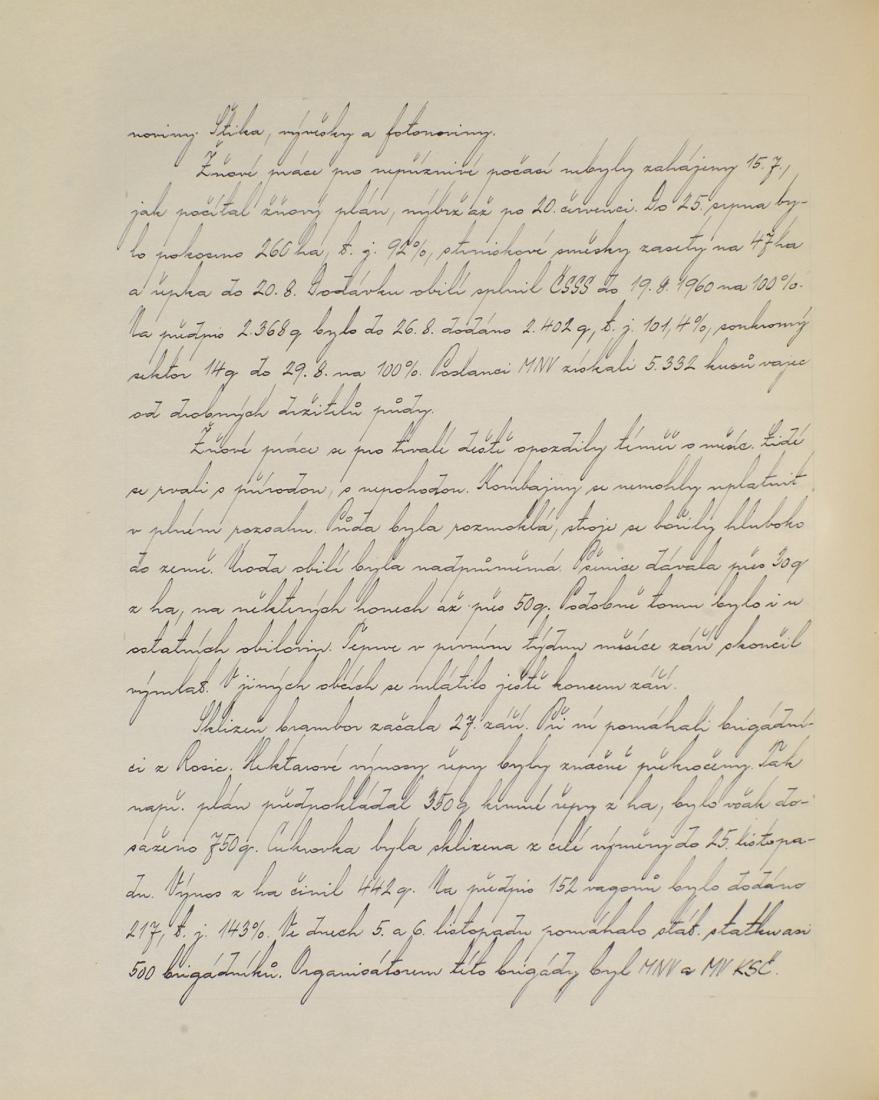 noviny Štika, vývěsky a fotonoviny.
Žňové práce pro nepříznivé počasí nebyly zahájeny 15.7.,
jak počítal žňový plán, nýbrž až po 20. červenci. Do 25. srpna by-
lo pokoseno 260 ha, t. j. 92%, strniskové směsky zasety na 47 ha
a řepka do 20. 8. Dodávku obilí splnil ČSSS do 19. 8. 1960 na 100%.
Na předpis 2.368 q bylo do 26. 8. dodáno 2.402 q, t. j. 101,4%, soukromý
sektor 14 q do 29. 8. na 100%. Poslanci MNV získali 5.332 kusů vajec
od drobných držitelů půdy.
Žňové práce se pro trvalé deště opozdily téměř o měsíc. Lidé
se rvali s přírodou, s nepohodou. Kombajny se nemohly uplatnit
v plném rozsahu. Půda byla rozmoklá, stroje se bořily hluboko
do země. Úroda obilí byla nadprůměrná. Pšenice dávala přes 30 q
z ha, na některých honech až přes 50 q. Podobně tomu bylo i u
ostatních obilovin. Teprve v prvním týdnu měsíce září skončil
výmlat. V jiných obcích se mlátilo ještě koncem září.
Sklizeň brambor začala 27. září. Při ní pomáhali brigádní-
ci z Rosic. Hektarové výnosy řepy byly značně překročeny. Tak
např. plán předpokládal 350 q krmné řepy z ha, bylo však do-
saženo 750 q. Cukrovka byla sklizena z celé výměry do 25. listopa-
du. Výnos z ha činil 442 q. Na předpis 152 vagonů bylo dodáno
217, t. j. 143%. Ve dnech 5. a 6. listopadu pomáhalo stát. statku asi
500 brigádníků. Organisátorem této brigády byl MNV a MV KSČ.